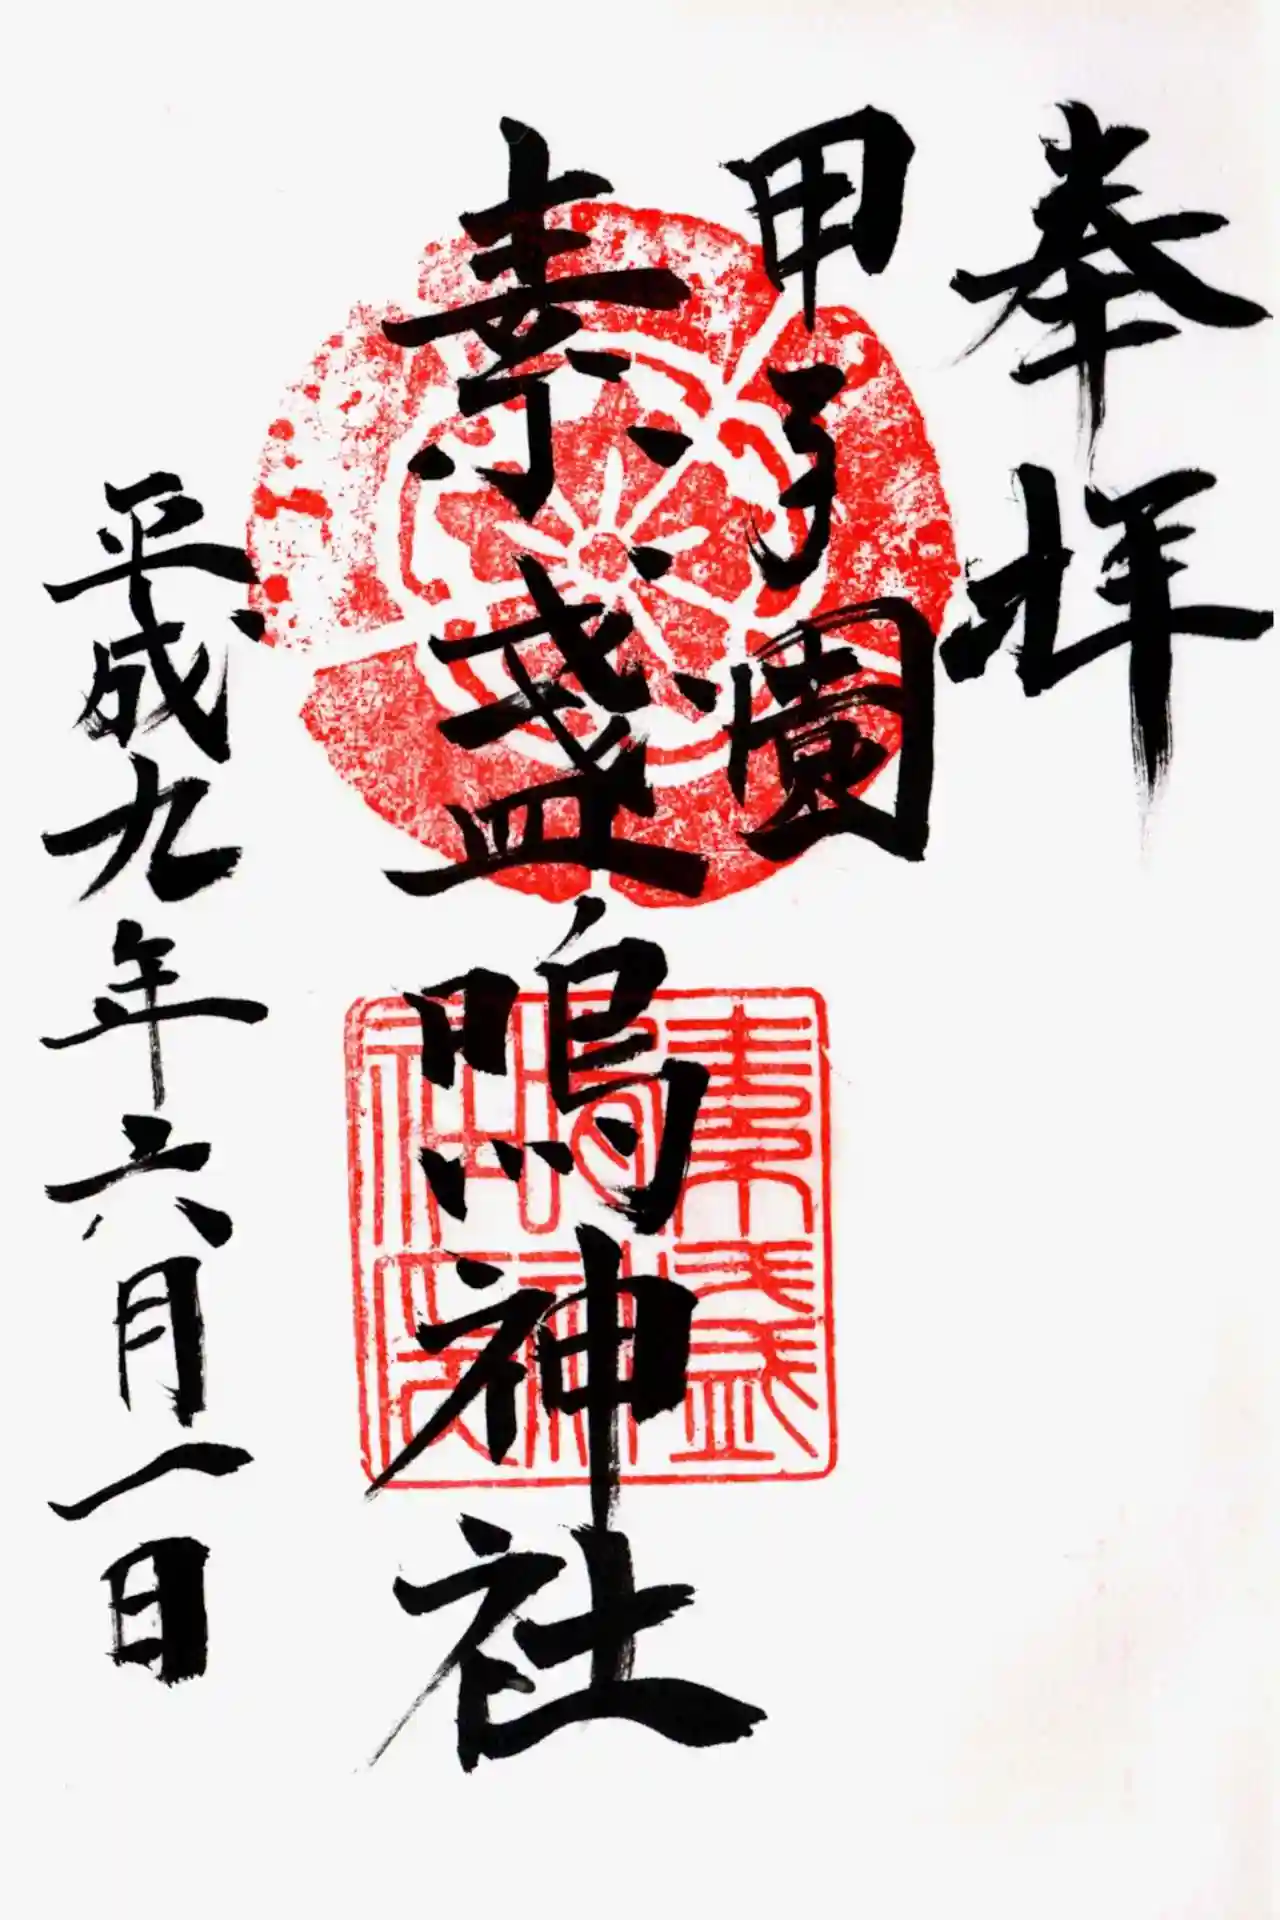 奉拝
甲子園
素盞嗚神社
平成九年六月一日
素盞
嗚神